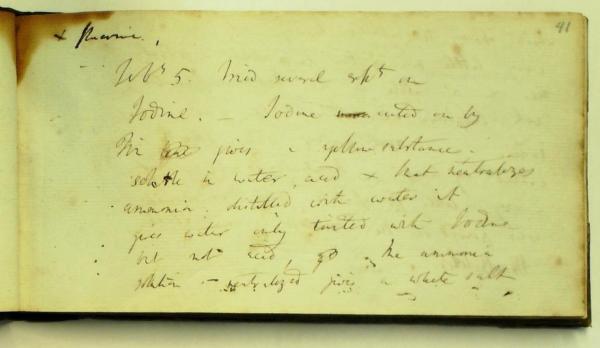 41
+ fluorine.
Feb.y 5. Tried several exp.ts on
Iodine. – Iodine acted on by
gives a yellow substance
soluble in water, acid + that neutralizes
ammonia. distilled with water it
gives water only tainted with Iodine
but not acid, The ammonia
solution neutralized gives a white salt